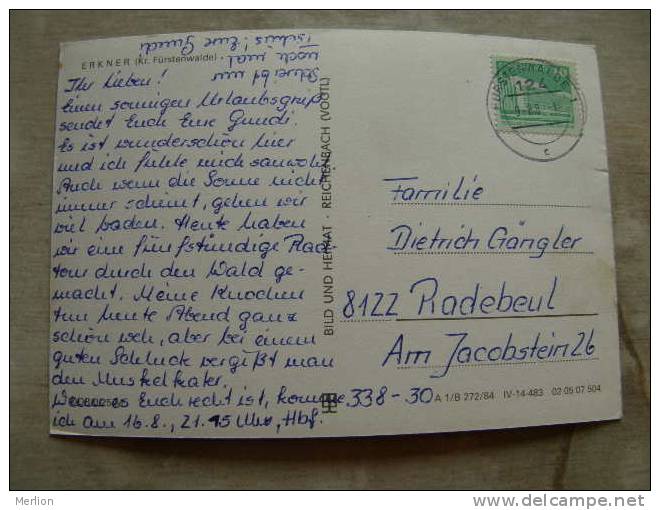 ERKNER (Kr. Fürstenwalde)
Ihr Lieben!
Einen sonnigen Urlaubsgruß
sendet Euch Eure Gundi.
Es ist wunderschön hier
und ich fühle mich sauwohl.
Auch wenn die Sonne nicht
immer scheint, gehen wir
viel baden. Heute haben
wir eine fünfstündige Rad-
tour durch den Wald ge-
macht. Meine Knochen
tun heute Abend ganz
schön weh, aber bei einem
guten Schluck vergißt man
den Muskelkater.
Wenn es Euch recht ist, komme
ich am 16.8., 21.45 Uhr, Hbf.
Schreibt mir
noch mal
Tschüs! Eure Gundi
BILD UND HEIMAT · REICHENBACH (VOGTL)
FÜRSTENWALDE 1
124
c
Familie
Dietrich Gängler
8122 Radebeul
Am Jacobstein 26
338-30
A 1/B 272/84 IV-14-483 02 05 07 504
Merlion
www.delcampe.net